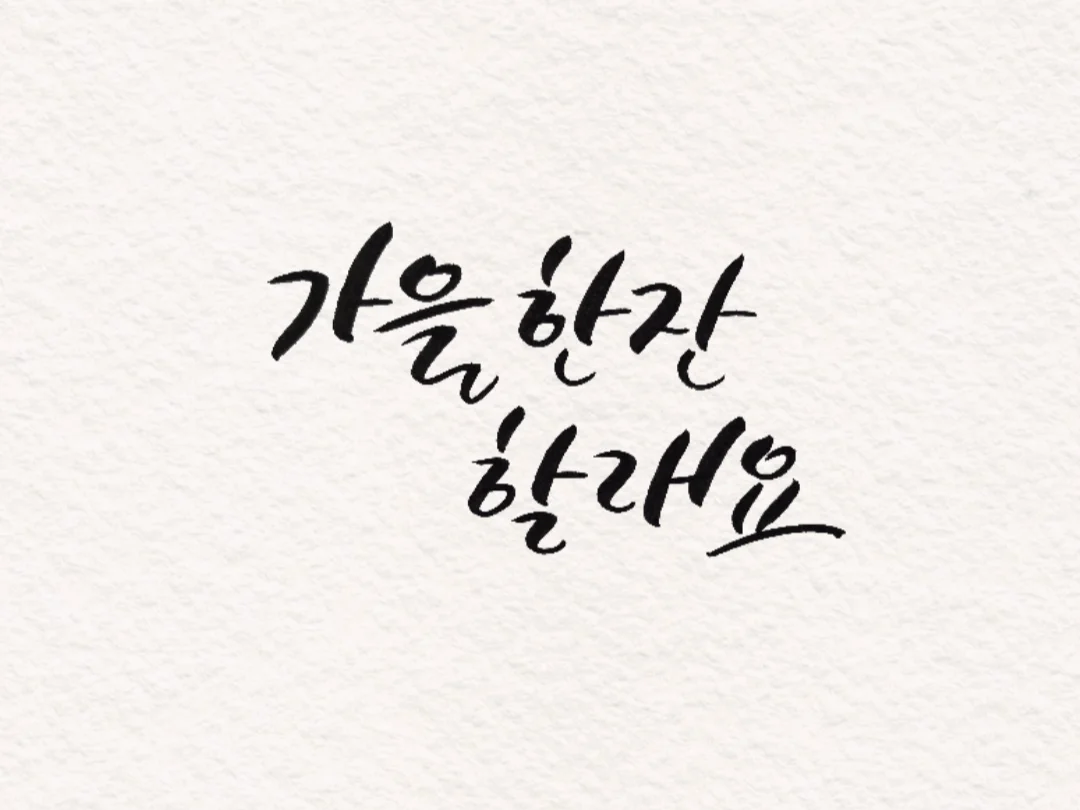 가을 한잔
할래요